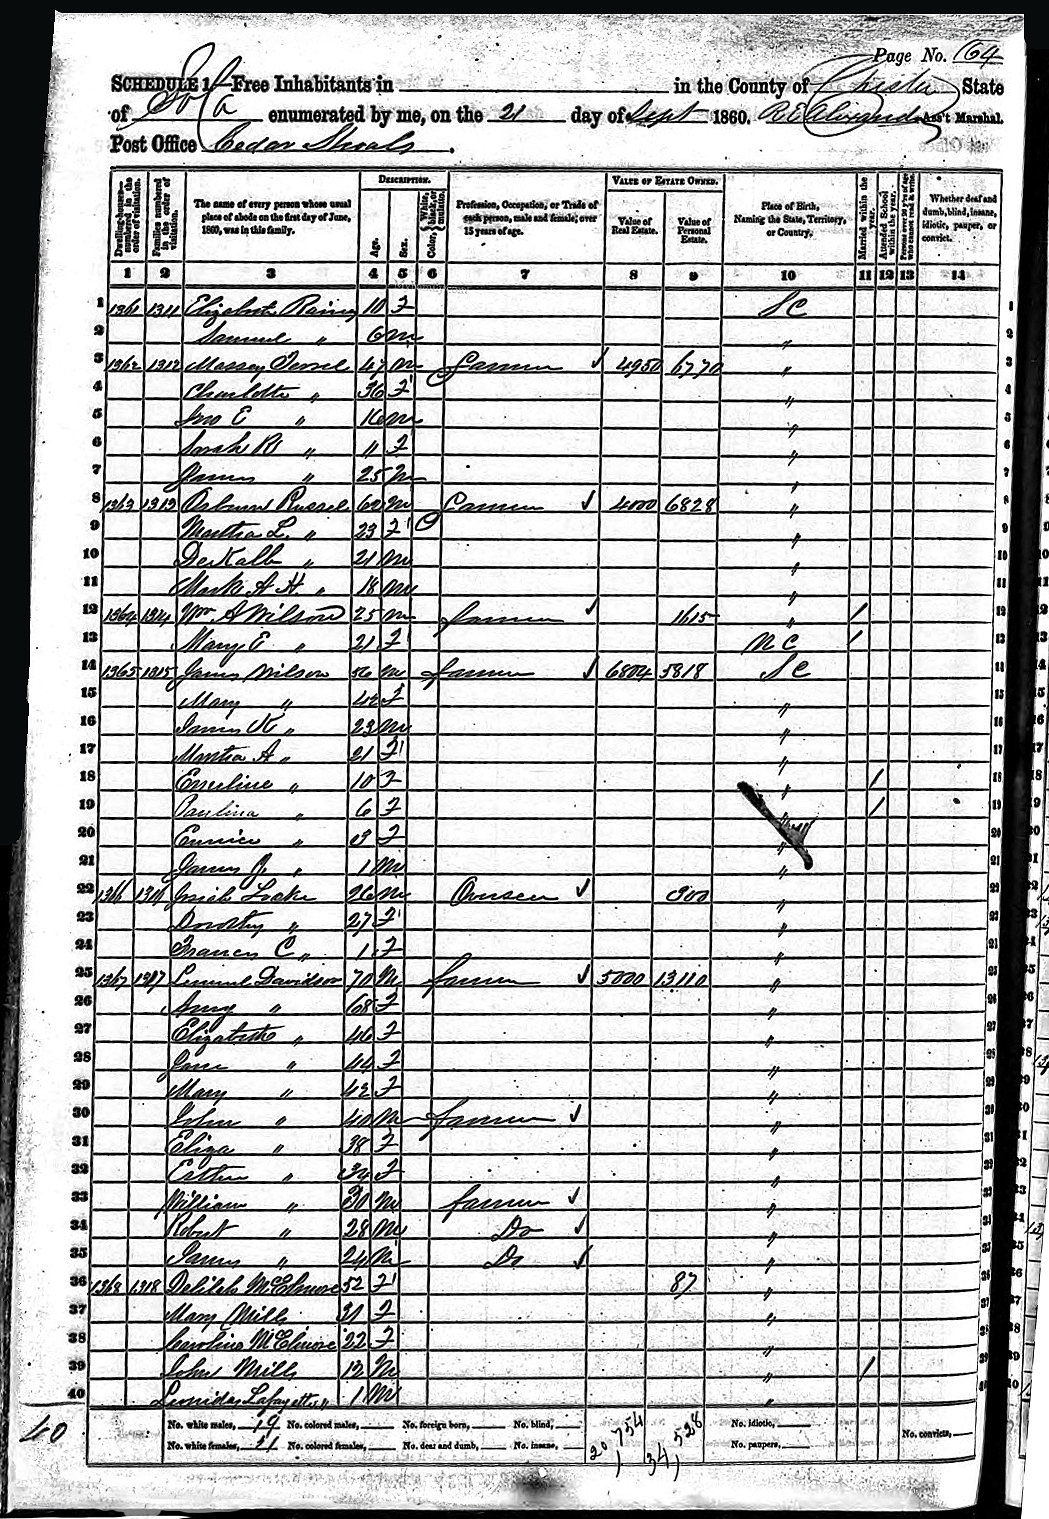 Page No. 164
SCHEDULE 1.—Free Inhabitants in in the County of Chester State
of So Ca enumerated by me, on the 21 day of Sept 1860. R E Alexander Ass't Marshal.
Post Office Cedar Shoals.
DESCRIPTION. VALUE OF ESTATE OWNED.
Dwelling-houses—numbered in the order of visitation. Families numbered in the order of visitation. The name of every person whose usual place of abode on the first day of June, 1860, was in this family. Age. Sex. Color, White, black, or mulatto. Profession, Occupation, or Trade of each person, male and female, over 15 years of age. Value of Real Estate. Value of Personal Estate. Place of Birth, Naming the State, Territory, or Country. Married within the year. Attended School within the year. Persons over 20 y'rs of age who cannot read & write. Whether deaf and dumb, blind, insane, idiotic, pauper, or convict.
1 2 3 4 5 6 7 8 9 10 11 12 13 14
1 1361 1311 Elizabeth Rainey 10 F S C 1
2 Samuel " 6 m " 2
3 1362 1312 Massey Terrel 47 m farmer ✓ 4950 6770 " 3
4 Charlotte " 36 F " 4
5 Jno E " 16 m " 5
6 Sarah R " 11 F " 6
7 James " 25 m " 7
8 1363 1313 Osburn Russel 62 m Farmer ✓ 4000 6828 " 8
9 Martha L. " 23 F " 9
10 DeKalb " 21 m " 10
11 Mark A H. " 18 m " 11
12 1364 1314 Wm A Wilson 25 m farmer ✓ 1615 " / 12
13 Mary E " 21 F N C / 13
14 1365 1315 James Wilson 56 m farmer ✓ 6804 5818 S C 14
15 Mary " 42 F " 15
16 James K " 23 m " 16
17 Martha A " 21 F " 17
18 Emeline " 10 F " / 18
19 Paulina " 6 F " / 19
20 Eunice " 3 F " 20
21 James J " 1 m " 21
22 1366 1316 Josiah Locke 26 m Overseer ✓ 300 " 22
23 Dorothy " 27 F " 23
24 Frances C " 1 F " 24
25 1367 1317 Lemuel Davidson 70 m farmer ✓ 5000 13110 " 25
26 Amy " 68 F " 26
27 Elizabeth " 46 F " 27
28 Jane " 44 F " 28
29 Mary " 42 F " 29
30 John " 40 m farmer ✓ " 30
31 Eliza " 38 F " 31
32 Esther " 34 F " 32
33 William " 30 m farmer ✓ " 33
34 Robert " 28 m Do ✓ " 34
35 James " 24 m Do ✓ " 35
36 1368 1318 Delilah McElmore 52 F 87 " 36
37 Mary Mills 31 F " 37
38 Caroline McElmore 22 F " 38
39 John Mills 12 m " / 39
40 Leonidas Lafayette " 1 m " 40
No. white males, 19 No. colored males, No. foreign born, No. blind, No. idiotic, No. convicts,
No. white females, 21 No. colored females, No. deaf and dumb, No. insane, No. paupers,
40